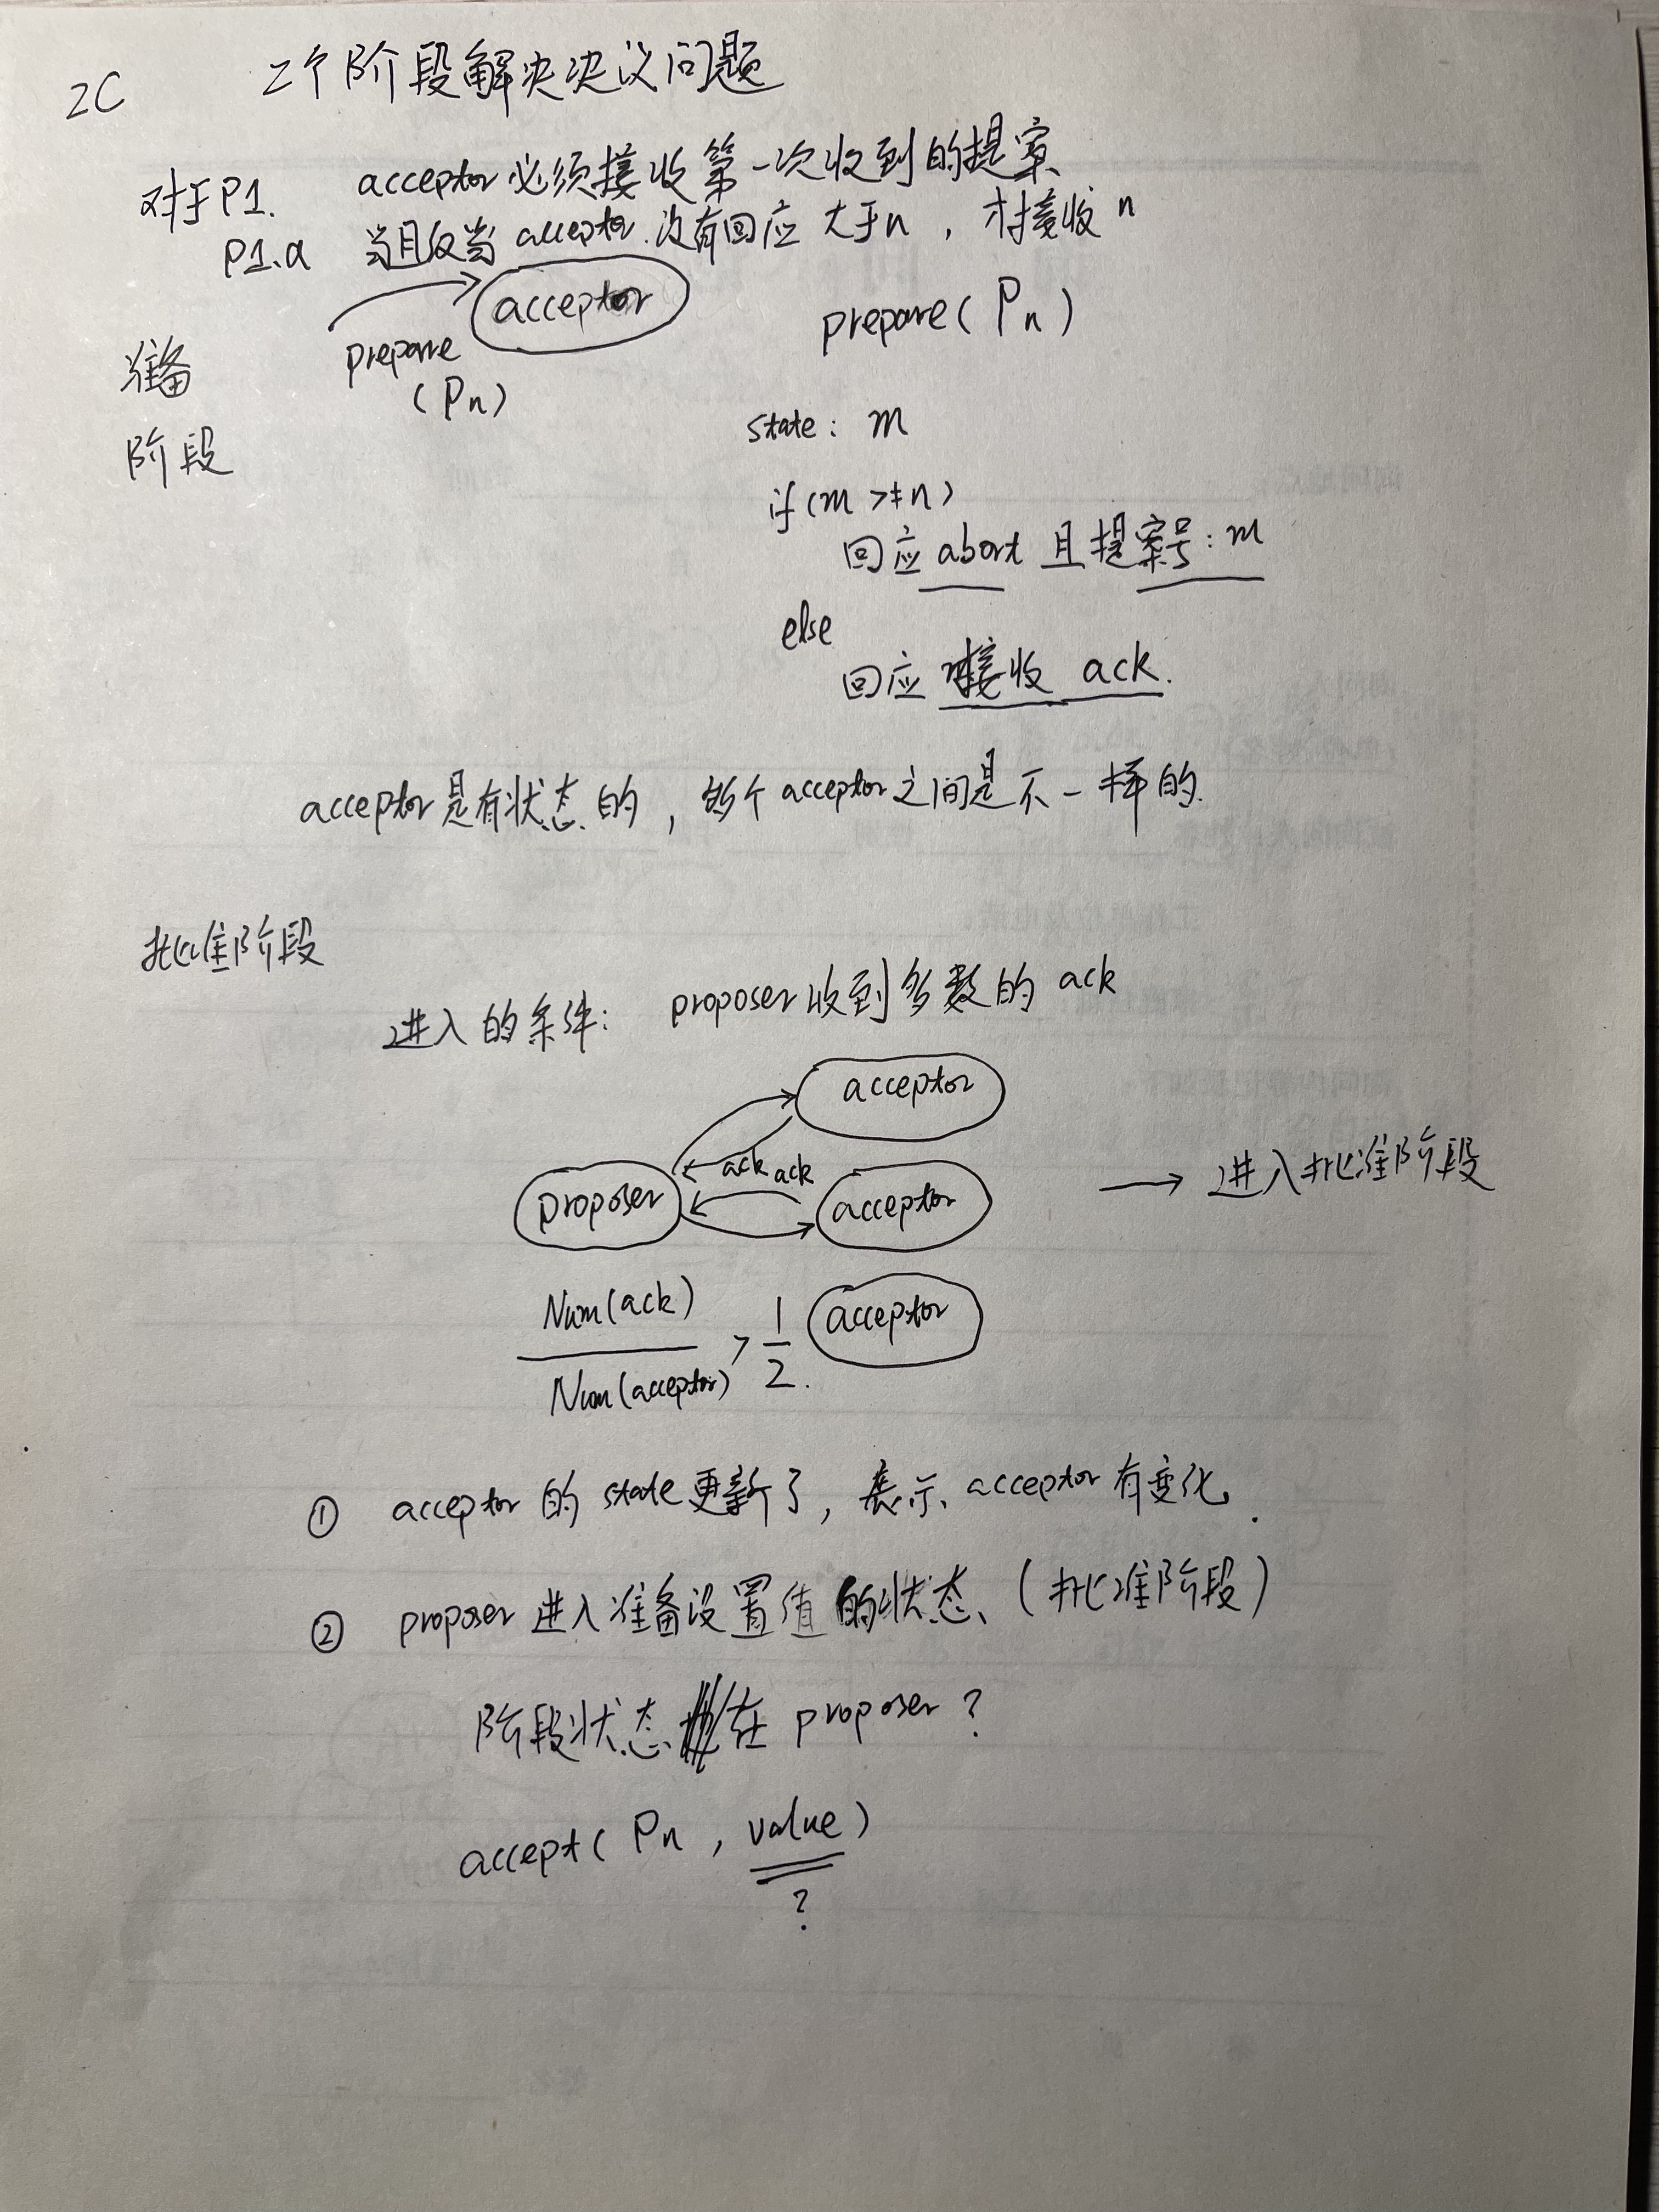 2C 2个阶段解决决议问题
对于P1. acceptor必须接收第一次收到的提案
P1.a 当且仅当 acceptor 没有回应大于n，才接收n
acceptor
prepare(Pn)
准备
阶段
prepare
(Pn)
state: m
if(m >= n)
回应 abort 且提案号: m
else
回应 接收 ack.
acceptor是有状态的，每个acceptor之间是不一样的.
批准阶段
进入的条件: proposer收到多数的 ack
acceptor
ack ack
proposer
acceptor
→ 进入批准阶段
Num(ack)
Num(acceptor)
> 1/2.
acceptor
① acceptor 的 state更新了，表示 acceptor 有变化.
② proposer 进入准备设置值的状态 (批准阶段)
阶段状态 在 proposer ?
accept( Pn , value)
?